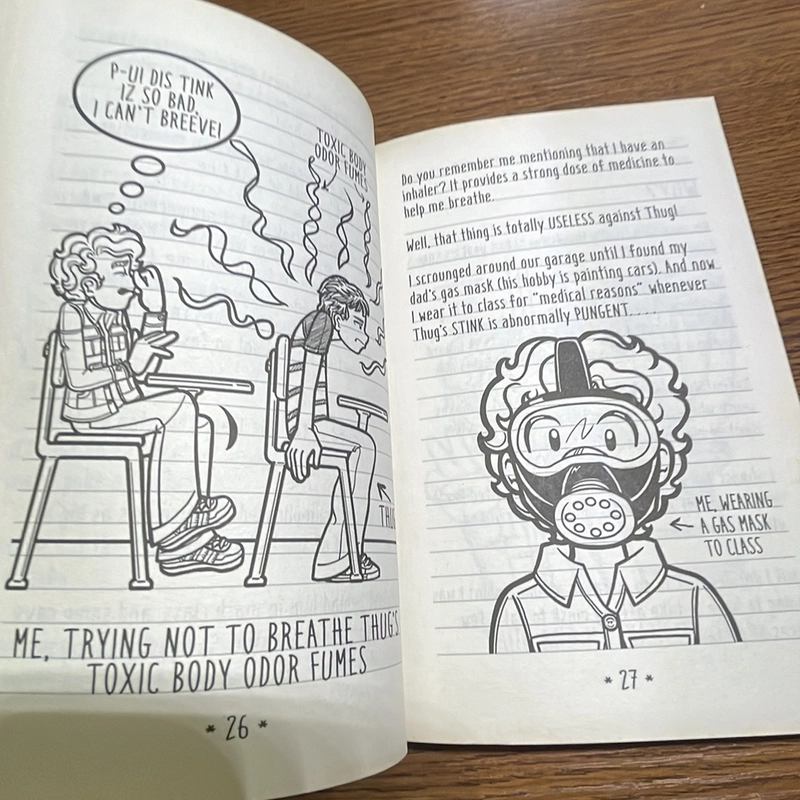 P-U! DIS TINK
IZ SO BAD,
I CAN'T BREEVE!
TOXIC BODY
ODOR FUMES
ME, TRYING NOT TO BREATHE THUG'S
TOXIC BODY ODOR FUMES
* 26 *
Do you remember me mentioning that I have an
inhaler? It provides a strong dose of medicine to
help me breathe.
Well, that thing is totally USELESS against Thug!
I scrounged around our garage until I found my
dad's gas mask (his hobby is painting cars). And now
I wear it to class for "medical reasons" whenever
Thug's STINK is abnormally PUNGENT. . . .
ME, WEARING
A GAS MASK
TO CLASS
* 27 *